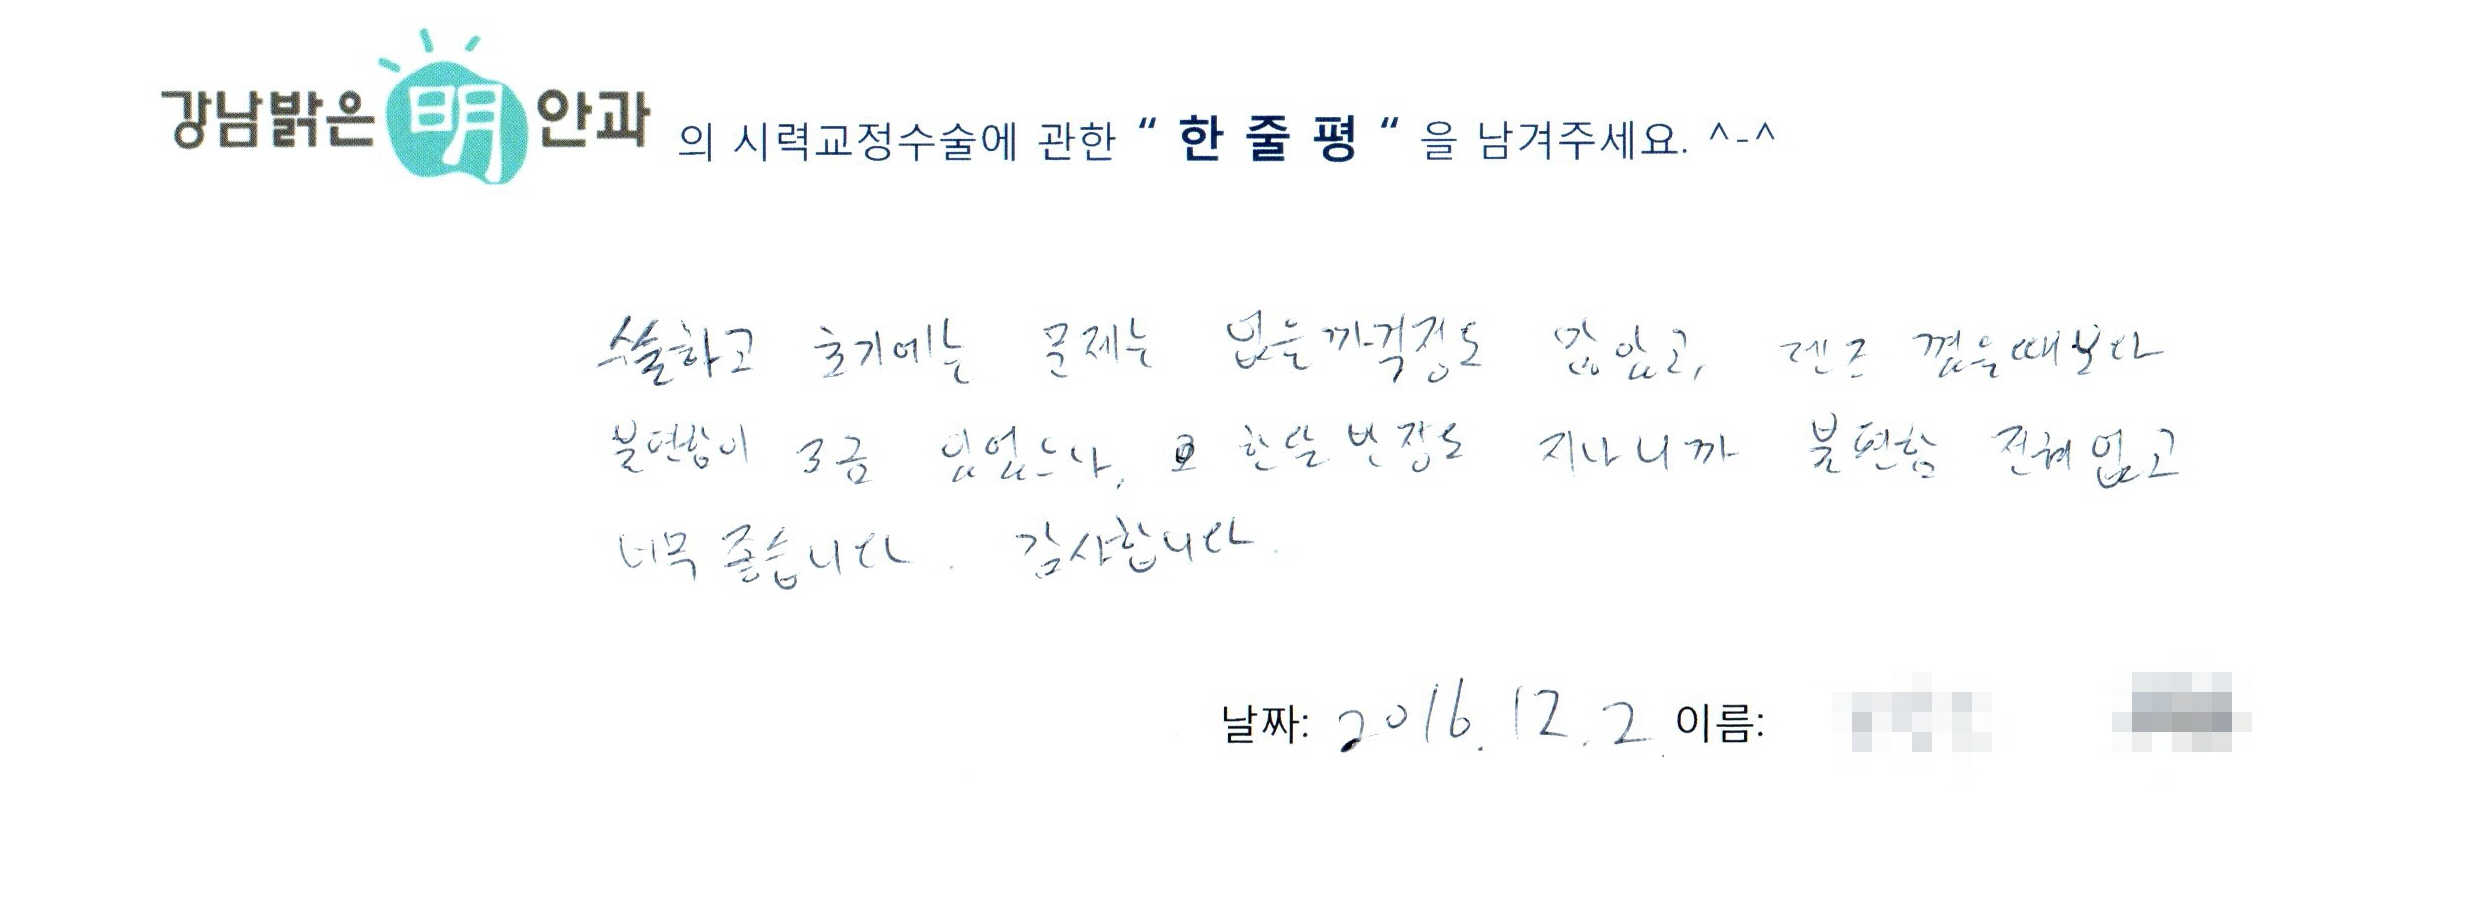 강남밝은明안과 의 시력교정수술에 관한 “ 한 줄 평 “ 을 남겨주세요. ^-^
수술하고 초기에는 문제는 없을까 걱정도 많았고, 렌즈 꼈을때보다
불편함이 조금 있었으나, 한달 반 정도 지나니까 불편함 전혀 없고
너무 좋습니다. 감사합니다.
날짜: 2016. 12. 2 이름: